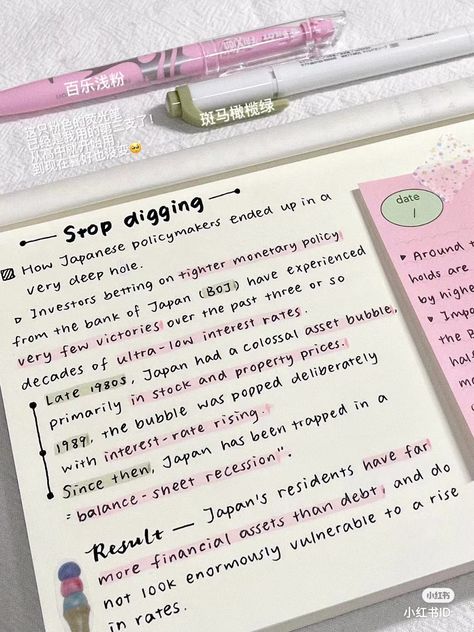 百乐浅粉
斑马橄榄绿
这只粉色的荧光笔
已经是我用的第二支了!
从高中就开始用
到现在喜好也没变🥺
Stop digging
How Japanese policymakers ended up in a
very deep hole.
Investors betting on tighter monetary policy
from the bank of Japan (BOJ) have experienced
very few victories over the past three or so
decades of ultra-low interest rates.
Late 1980s, Japan had a colossal asset bubble,
primarily in stock and property prices.
1989, the bubble was popped deliberately
with interest-rate rising.
Since then, Japan has been trapped in a
"balance-sheet recession".
Result — Japan's residents have far
more financial assets than debt, and do
not look enormously vulnerable to a rise
in rates.
date
/
Around
holds are
by higher
the B
half
小红书
小红书ID: